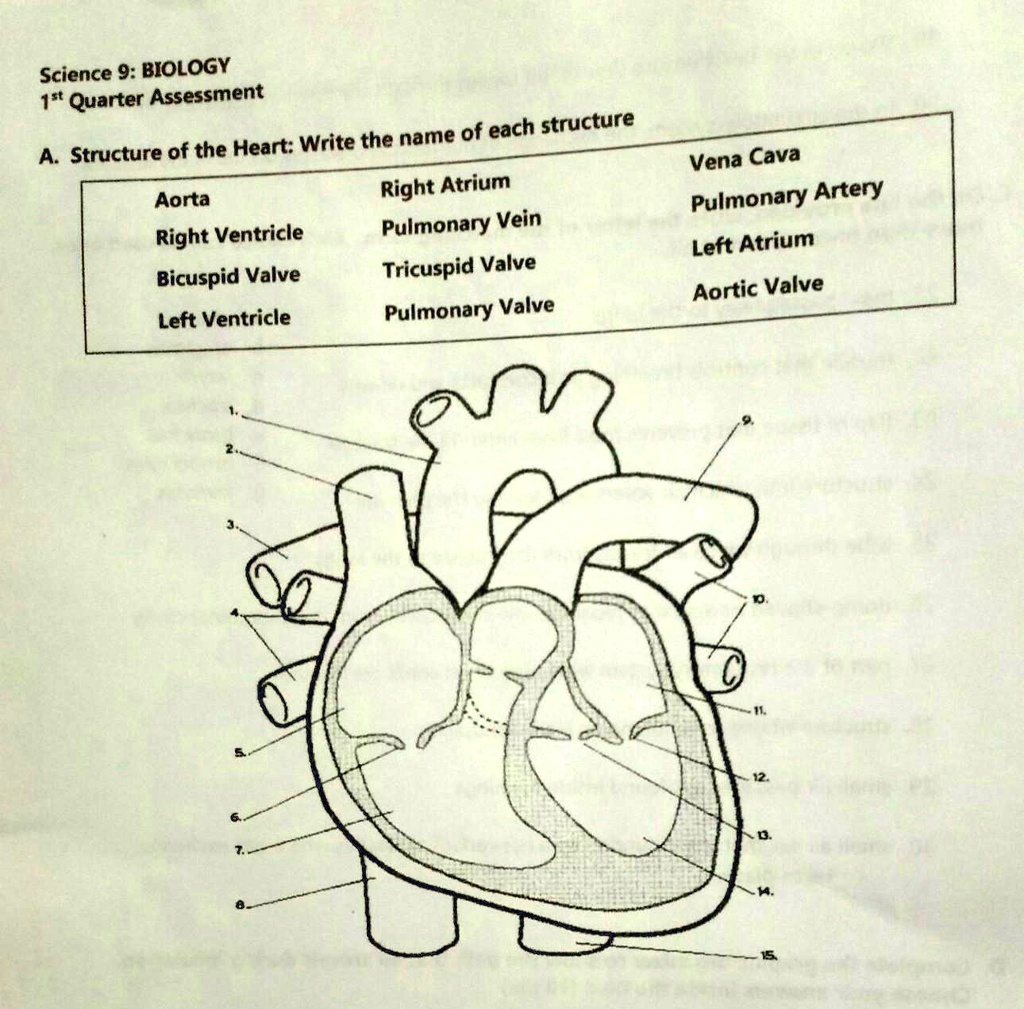 Science 9: BIOLOGY
1st Quarter Assessment
A. Structure of the Heart: Write the name of each structure
Aorta Right Atrium Vena Cava
Right Ventricle Pulmonary Vein Pulmonary Artery
Bicuspid Valve Tricuspid Valve Left Atrium
Left Ventricle Pulmonary Valve Aortic Valve
1.
2.
3.
4.
5.
6.
7.
8.
9.
10.
11.
12.
13.
14.
15.